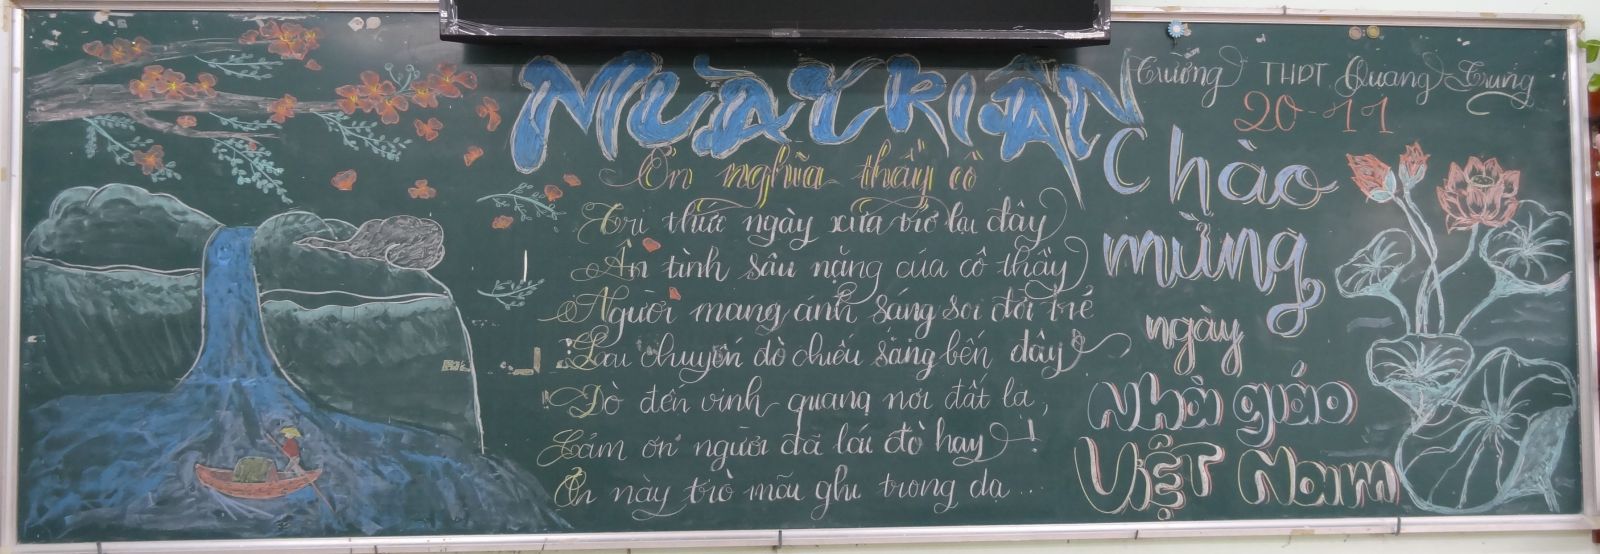 MÙA TRI ÂN
Ơn nghĩa thầy cô
Tri thức ngày xưa trở lại đây
Ân tình sâu nặng của cô thầy
Người mang ánh sáng soi đời trẻ
Lau chuyến đò chiều sang bến đây
Đò đến vinh quang nơi đất lạ,
Cảm ơn người đã lái đò hay!
Ơn này trò mãi ghi trong dạ...
Trường THPT Quang Trung
20-11
Chào
mừng
ngày
Nhà giáo
Việt Nam